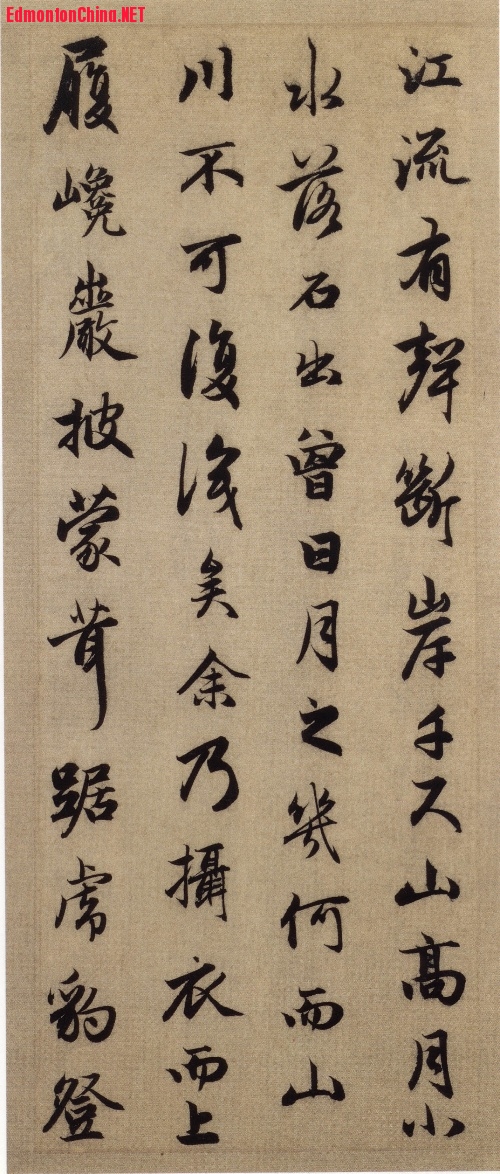 EdmontonChina.NET
江流有聲斷岸千尺山高月小
水落石出曾日月之幾何而山
川不可復識矣余乃攝衣而上
履巉巖披蒙茸踞虎豹登